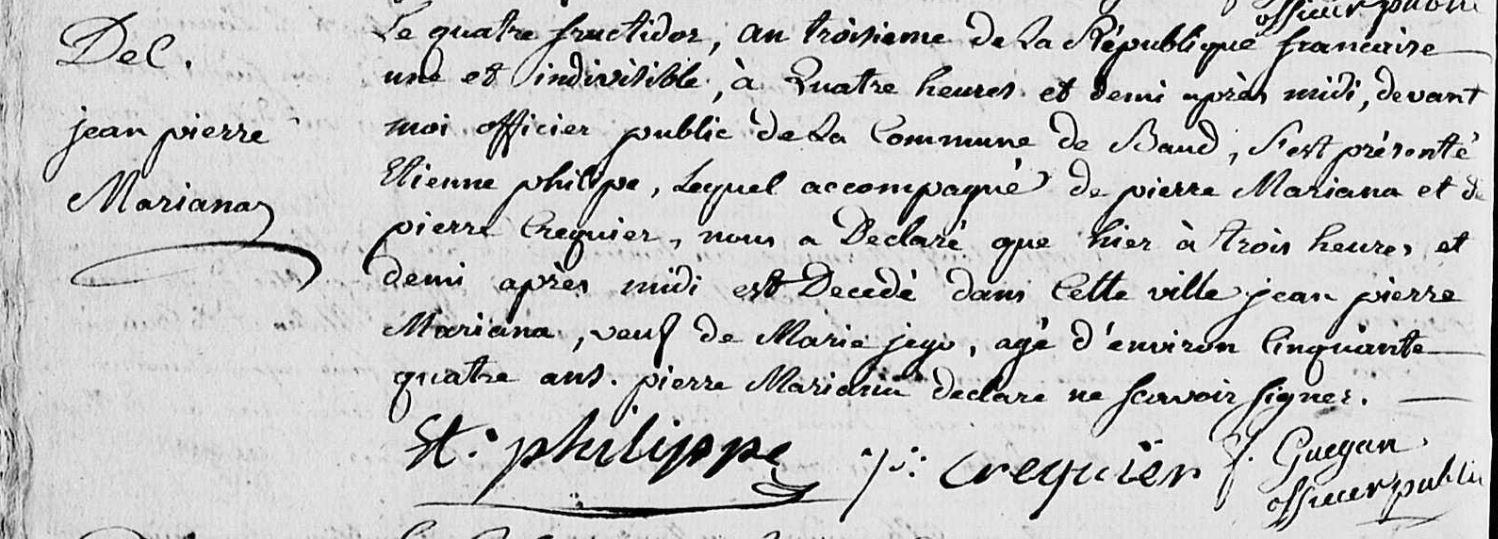 officier public
Dec.
jean pierre
Mariana
Le quatre fructidor, an troisieme de La République francaise
une et indivisible, à Quatre heures et demi après midi, devant
moi officier public de La Commune de Baud, s'est présenté
Etienne philipe, Lequel accompagné de pierre Mariana et de
pierre Crequier, nous a Declaré que hier à trois heures et
demi après midi est Decedé dans Cette ville jean pierre
Mariana, veuf de Marie jego, agé d'environ Cinquante
quatre ans. pierre Mariana declare ne scavoir signer.
Et. philippe p. crequier f. Guegan
officier public